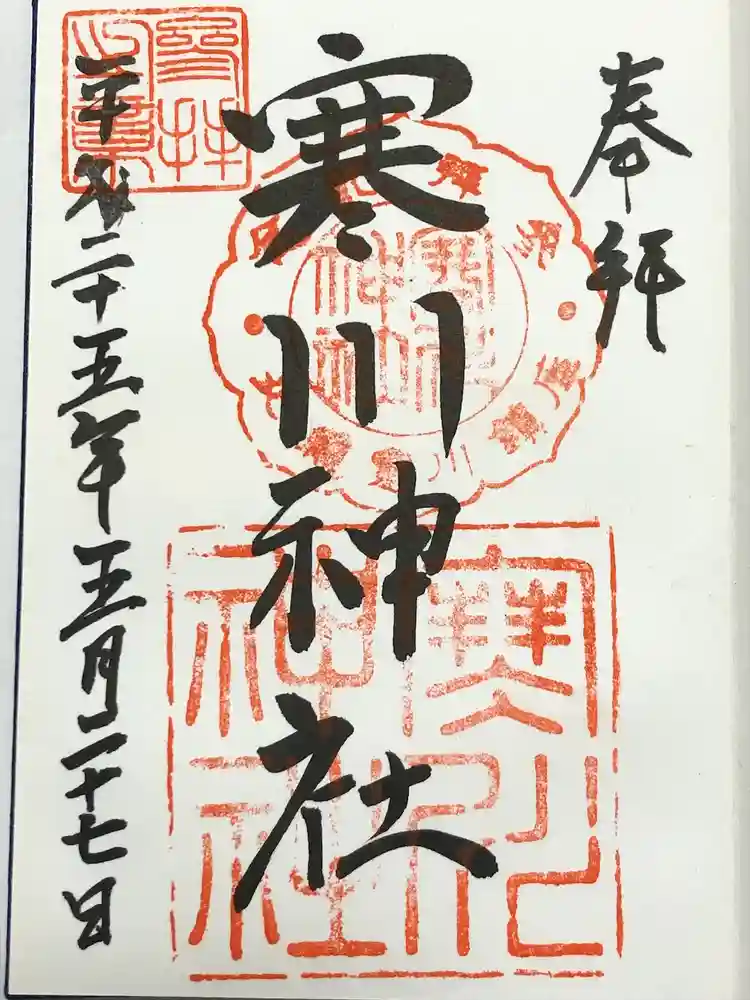 奉拝
寒川神社
平成二十五年五月二十七日
参拝
之章
寒川
神社